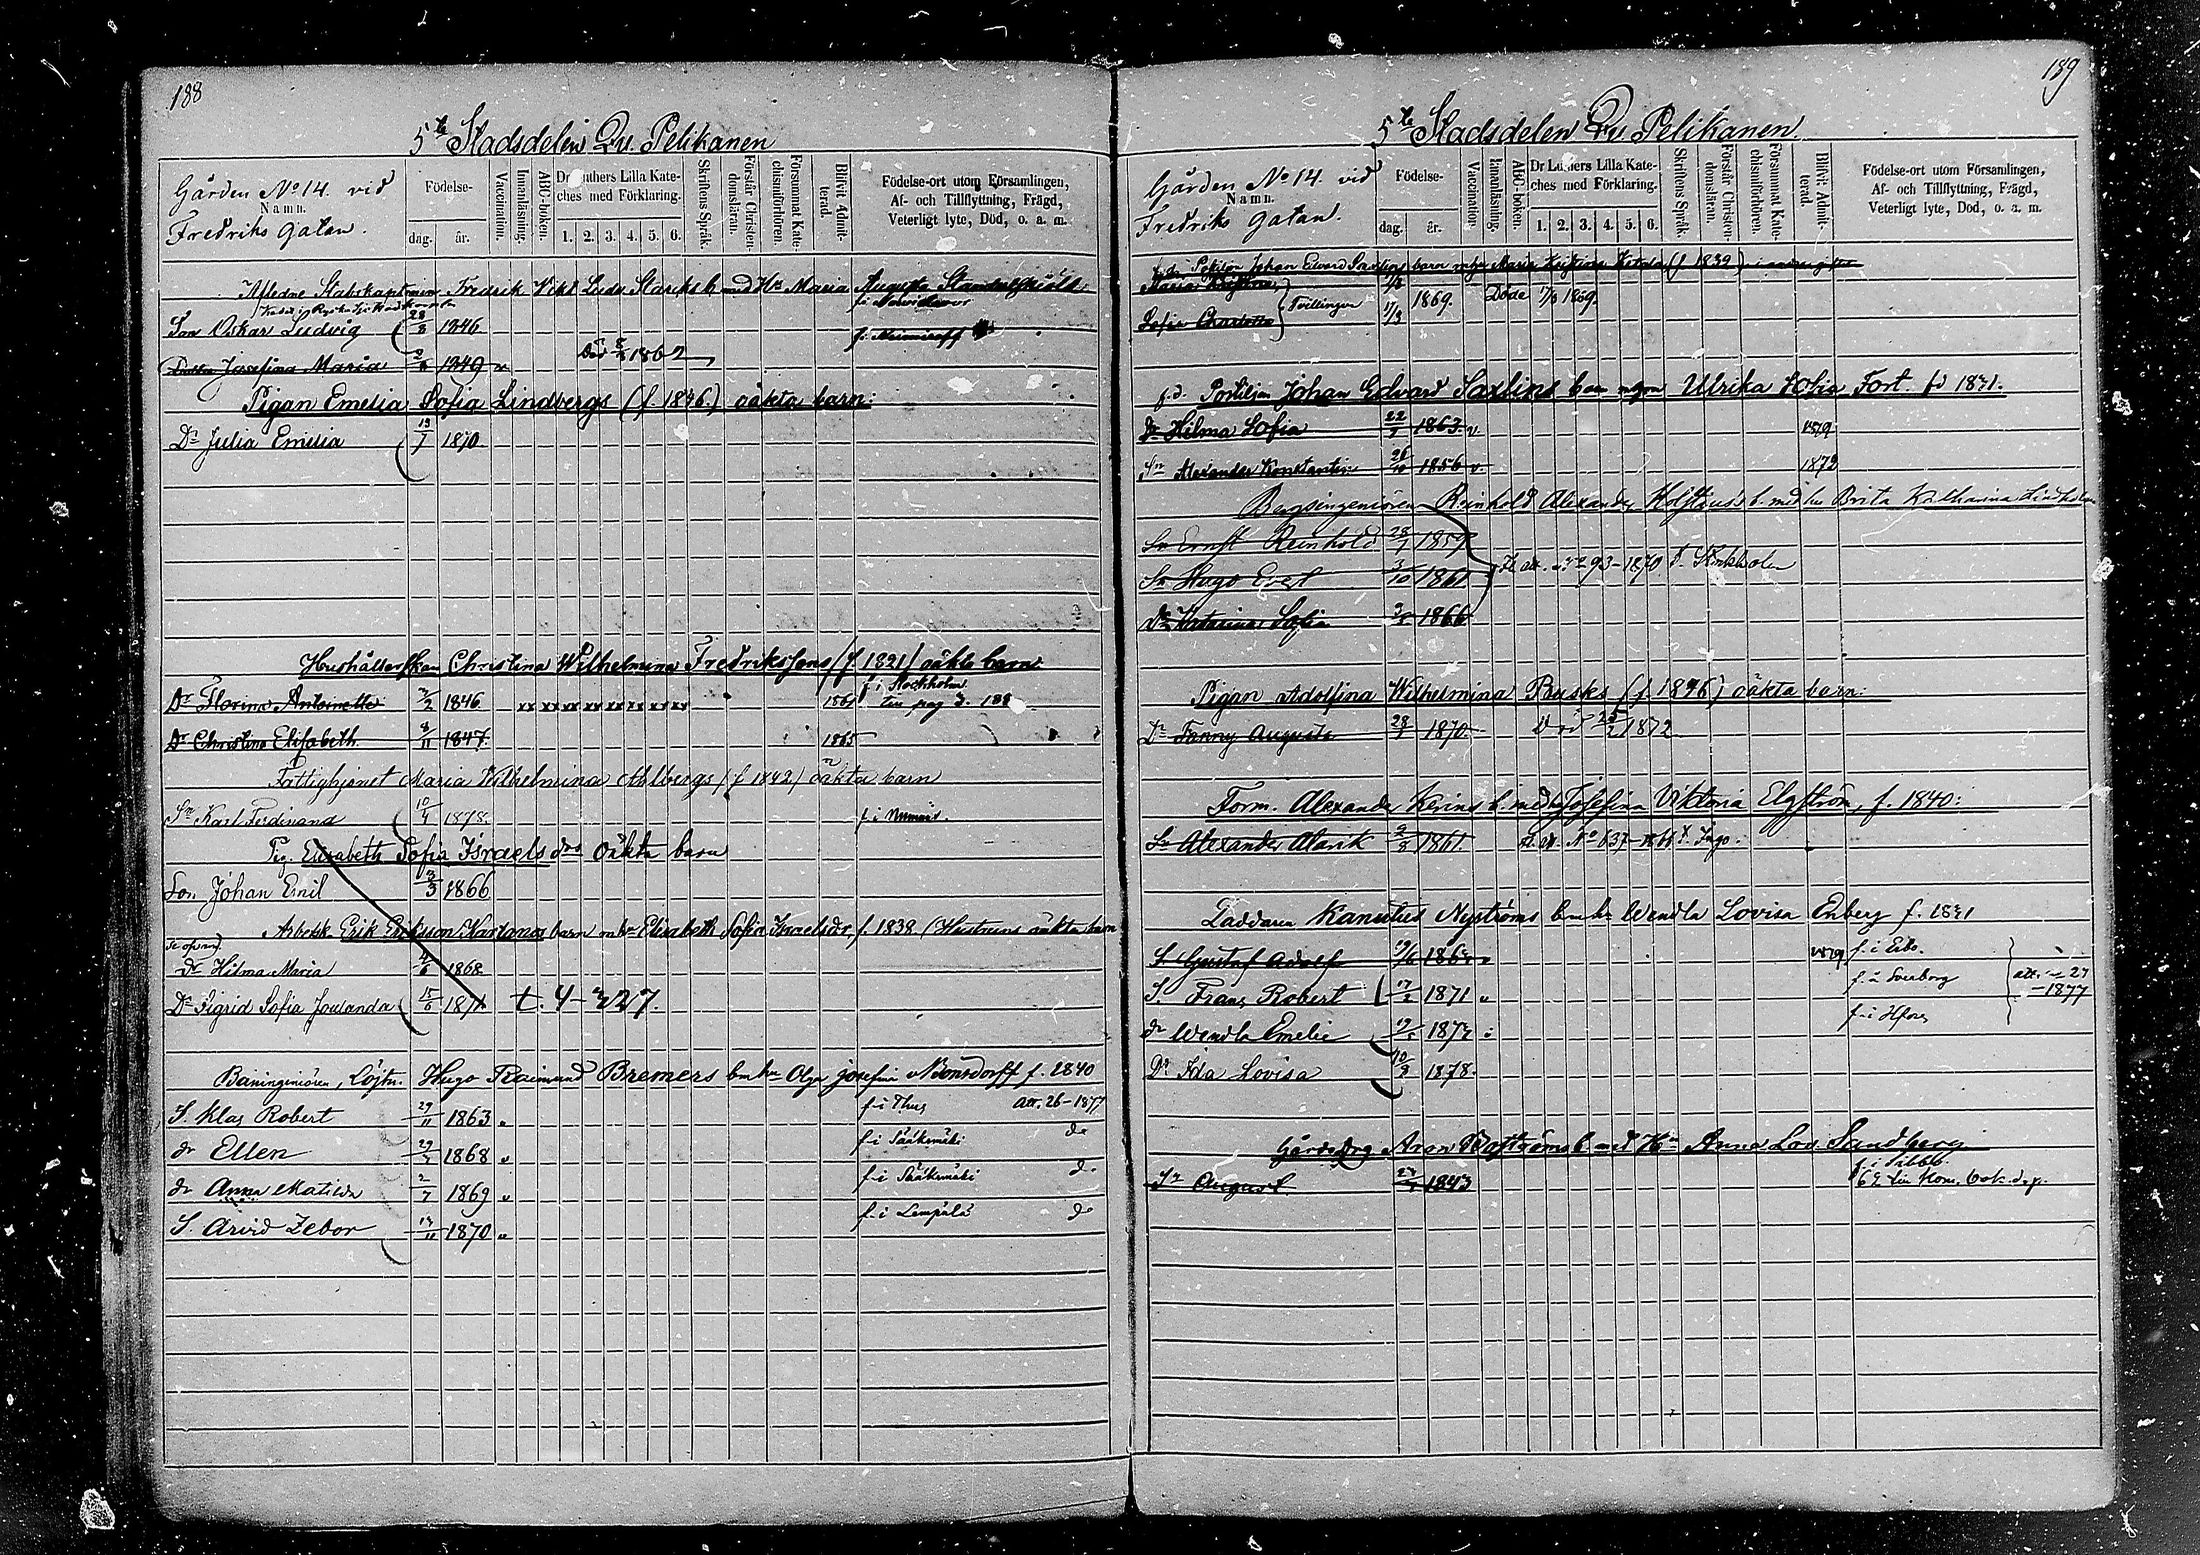 188
5te Stadsdelen Qv. Pelikanen
Gården No 14. vid
Namn.
Fredriks gatan.
Födelse-
dag. år.
Vaccination.
Innanläsning.
ABC-boken.
Dr Luthers Lilla Kate-
ches med Förklaring.
1. 2. 3. 4. 5. 6.
Skriftens Språk.
Förstår Christen-
domsläran.
Försummat Kate-
chismiförhören.
Blifvit Admit-
terad.
Födelse-ort utom Församlingen,
Af- och Tillflyttning, Frägd,
Veterligt lyte, Död, o. a. m.
Aflidne Stabskaptenen Fredrik Vikt Ludv. Starcks b. med Hu Maria Augusta
Son Oskar Ludvig 28/8 1846
Josefina Maria 1849 Död 1862
Pigan Emelia Sofia Lindbergs (f 1846) oäkta barn:
Dr Julia Emilia 19/7 1870
Hushållerskan Christina Wilhelmina Fredrikssons (f 1821) oäkta barn
Dr Florina Antoinette 2/2 1846 xx xx xx xx xx xx xx xx 1861 f i Stockholm
Dr Christina Elisabeth 3/11 1847 1865
Fattighjonet Maria Wilhelmina Ahlbergs (f 1842) oäkta barn
Sn Karl Ferdinand 10/4 1878 f i
Pig. Elisabeth Sofia Israelsdrs Oäkta barn
Son Johan Emil 3/3 1866
Arbetsk. Erik Eriksson Hartanos barn m hu Elisabeth Sofia Israelsdr f. 1838 (Hustruns oäkta barn
dr Hilma Maria 4/6 1868
Dr Sigrid Sofia Joulanda 15/6 1871 t. 4-227.
Baningeniören, Löjtn. Hugo Raimund Bremers bm hu Olga Josefina Bonsdorff f. 1840
S. Klas Robert 29/11 1863 f-i Thus att. 26-1877
dr Ellen 1868 f-i Sääksmäki do
dr Anna Matilda 2/7 1869 f-i Sääksmäki do
S. Arvid Zebor 1870 f-i Lempälä do
189
5te Stadsdelen Qv. Pelikanen
Gården No 14. vid
Namn.
Fredriks gatan.
Födelse-
dag. år.
Vaccination.
Innanläsning.
ABC-boken.
Dr Luthers Lilla Kate-
ches med Förklaring.
1. 2. 3. 4. 5. 6.
Skriftens Språk.
Förstår Christen-
domsläran.
Försummat Kate-
chismiförhören.
Blifvit Admit-
terad.
Födelse-ort utom Församlingen,
Af- och Tillflyttning, Frägd,
Veterligt lyte, Död, o. a. m.
Johan Edvard Saxlins barn Maria Kristina (f 1839)
Maria Kristina
Tvillingar 1869. Döde 1869
Sofia Charlotta
f.d. Postiljon Johan Edvard Saxlins barn Ulrika Sofia Fort fd 1831.
dr Hilma Sofia 22/7 1863 v 1879
Sn Alexander Konstantin 26/10 1856 v. 1872
Bergsingeniören Reinhold Alexander b. med hu Brita Katharina
Sn Ernst Reinhold 28/7 1859
Sn Hugo Evert 3/10 1861 93-1870 t. Stockholm
dr Katarina Sofia 1866
Pigan Adolfina Wilhelmina Basks (f 1846) oäkta barn:
Dr Fanny Augusta 1870 Död 1872
Form. Alexander b. med hu Josefina Viktoria Elgström, f. 1840:
Sn Alexander Alarik 2/8 1861 No 637-1866
Laddaren Kanutus Nyströms bm hu Wendla Lovisa Enberg f. 1841
S. Gustaf Adolf 1879 f-i Esbo
S. Frans Robert 17/2 1871 f-å Sveaborg att. 27
-1877
dr Wendla Emelie f-i Hfors
Dr Ida Lovisa 10/3 1878
Gårdsdrg Aron b. med Hu Anna Lov. Sandberg
Sn August 1843 f. i Sibbo